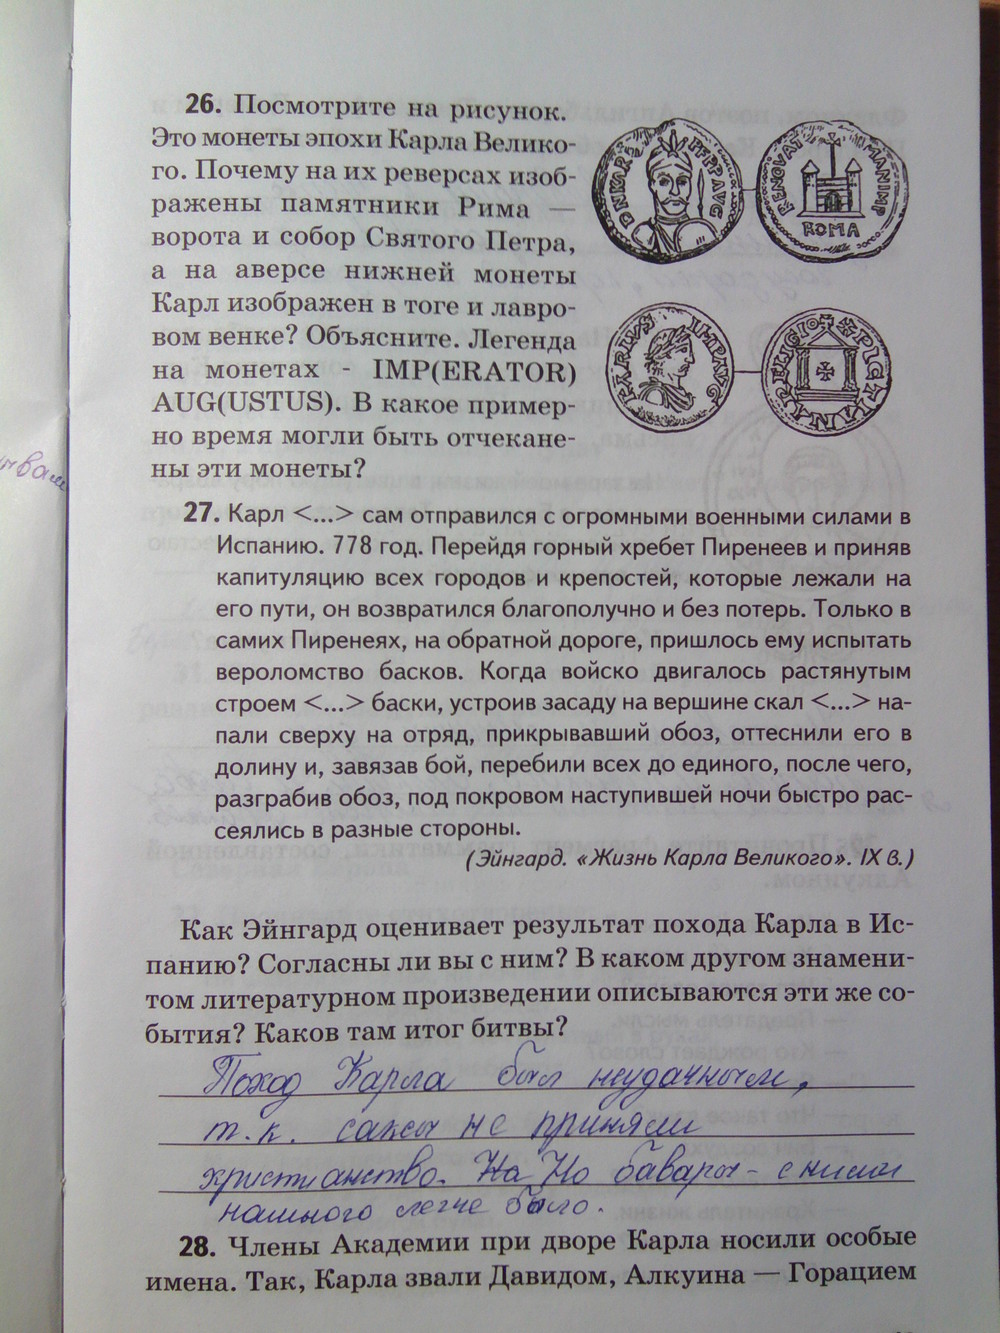 26. Посмотрите на рисунок.
Это монеты эпохи Карла Велико-
го. Почему на их реверсах изоб-
ражены памятники Рима —
ворота и собор Святого Петра,
а на аверсе нижней монеты
Карл изображен в тоге и лавро-
вом венке? Объясните. Легенда
на монетах - IMP(ERATOR)
AUG(USTUS). В какое пример-
но время могли быть отчекане-
ны эти монеты?
ROMA
27. Карл <...> сам отправился с огромными военными силами в
Испанию. 778 год. Перейдя горный хребет Пиренеев и приняв
капитуляцию всех городов и крепостей, которые лежали на
его пути, он возвратился благополучно и без потерь. Только в
самих Пиренеях, на обратной дороге, пришлось ему испытать
вероломство басков. Когда войско двигалось растянутым
строем <...> баски, устроив засаду на вершине скал <...> на-
пали сверху на отряд, прикрывавший обоз, оттеснили его в
долину и, завязав бой, перебили всех до единого, после чего,
разграбив обоз, под покровом наступившей ночи быстро рас-
сеялись в разные стороны.
(Эйнгард. «Жизнь Карла Великого». IX в.)
Как Эйнгард оценивает результат похода Карла в Ис-
панию? Согласны ли вы с ним? В каком другом знамени-
том литературном произведении описываются эти же со-
бытия? Каков там итог битвы?
Поход Карла был неудачным,
т.к. саксы не приняли
христианство. На Но бавары - с ними
намного легче было.
28. Члены Академии при дворе Карла носили особые
имена. Так, Карла звали Давидом, Алкуина — Горацием